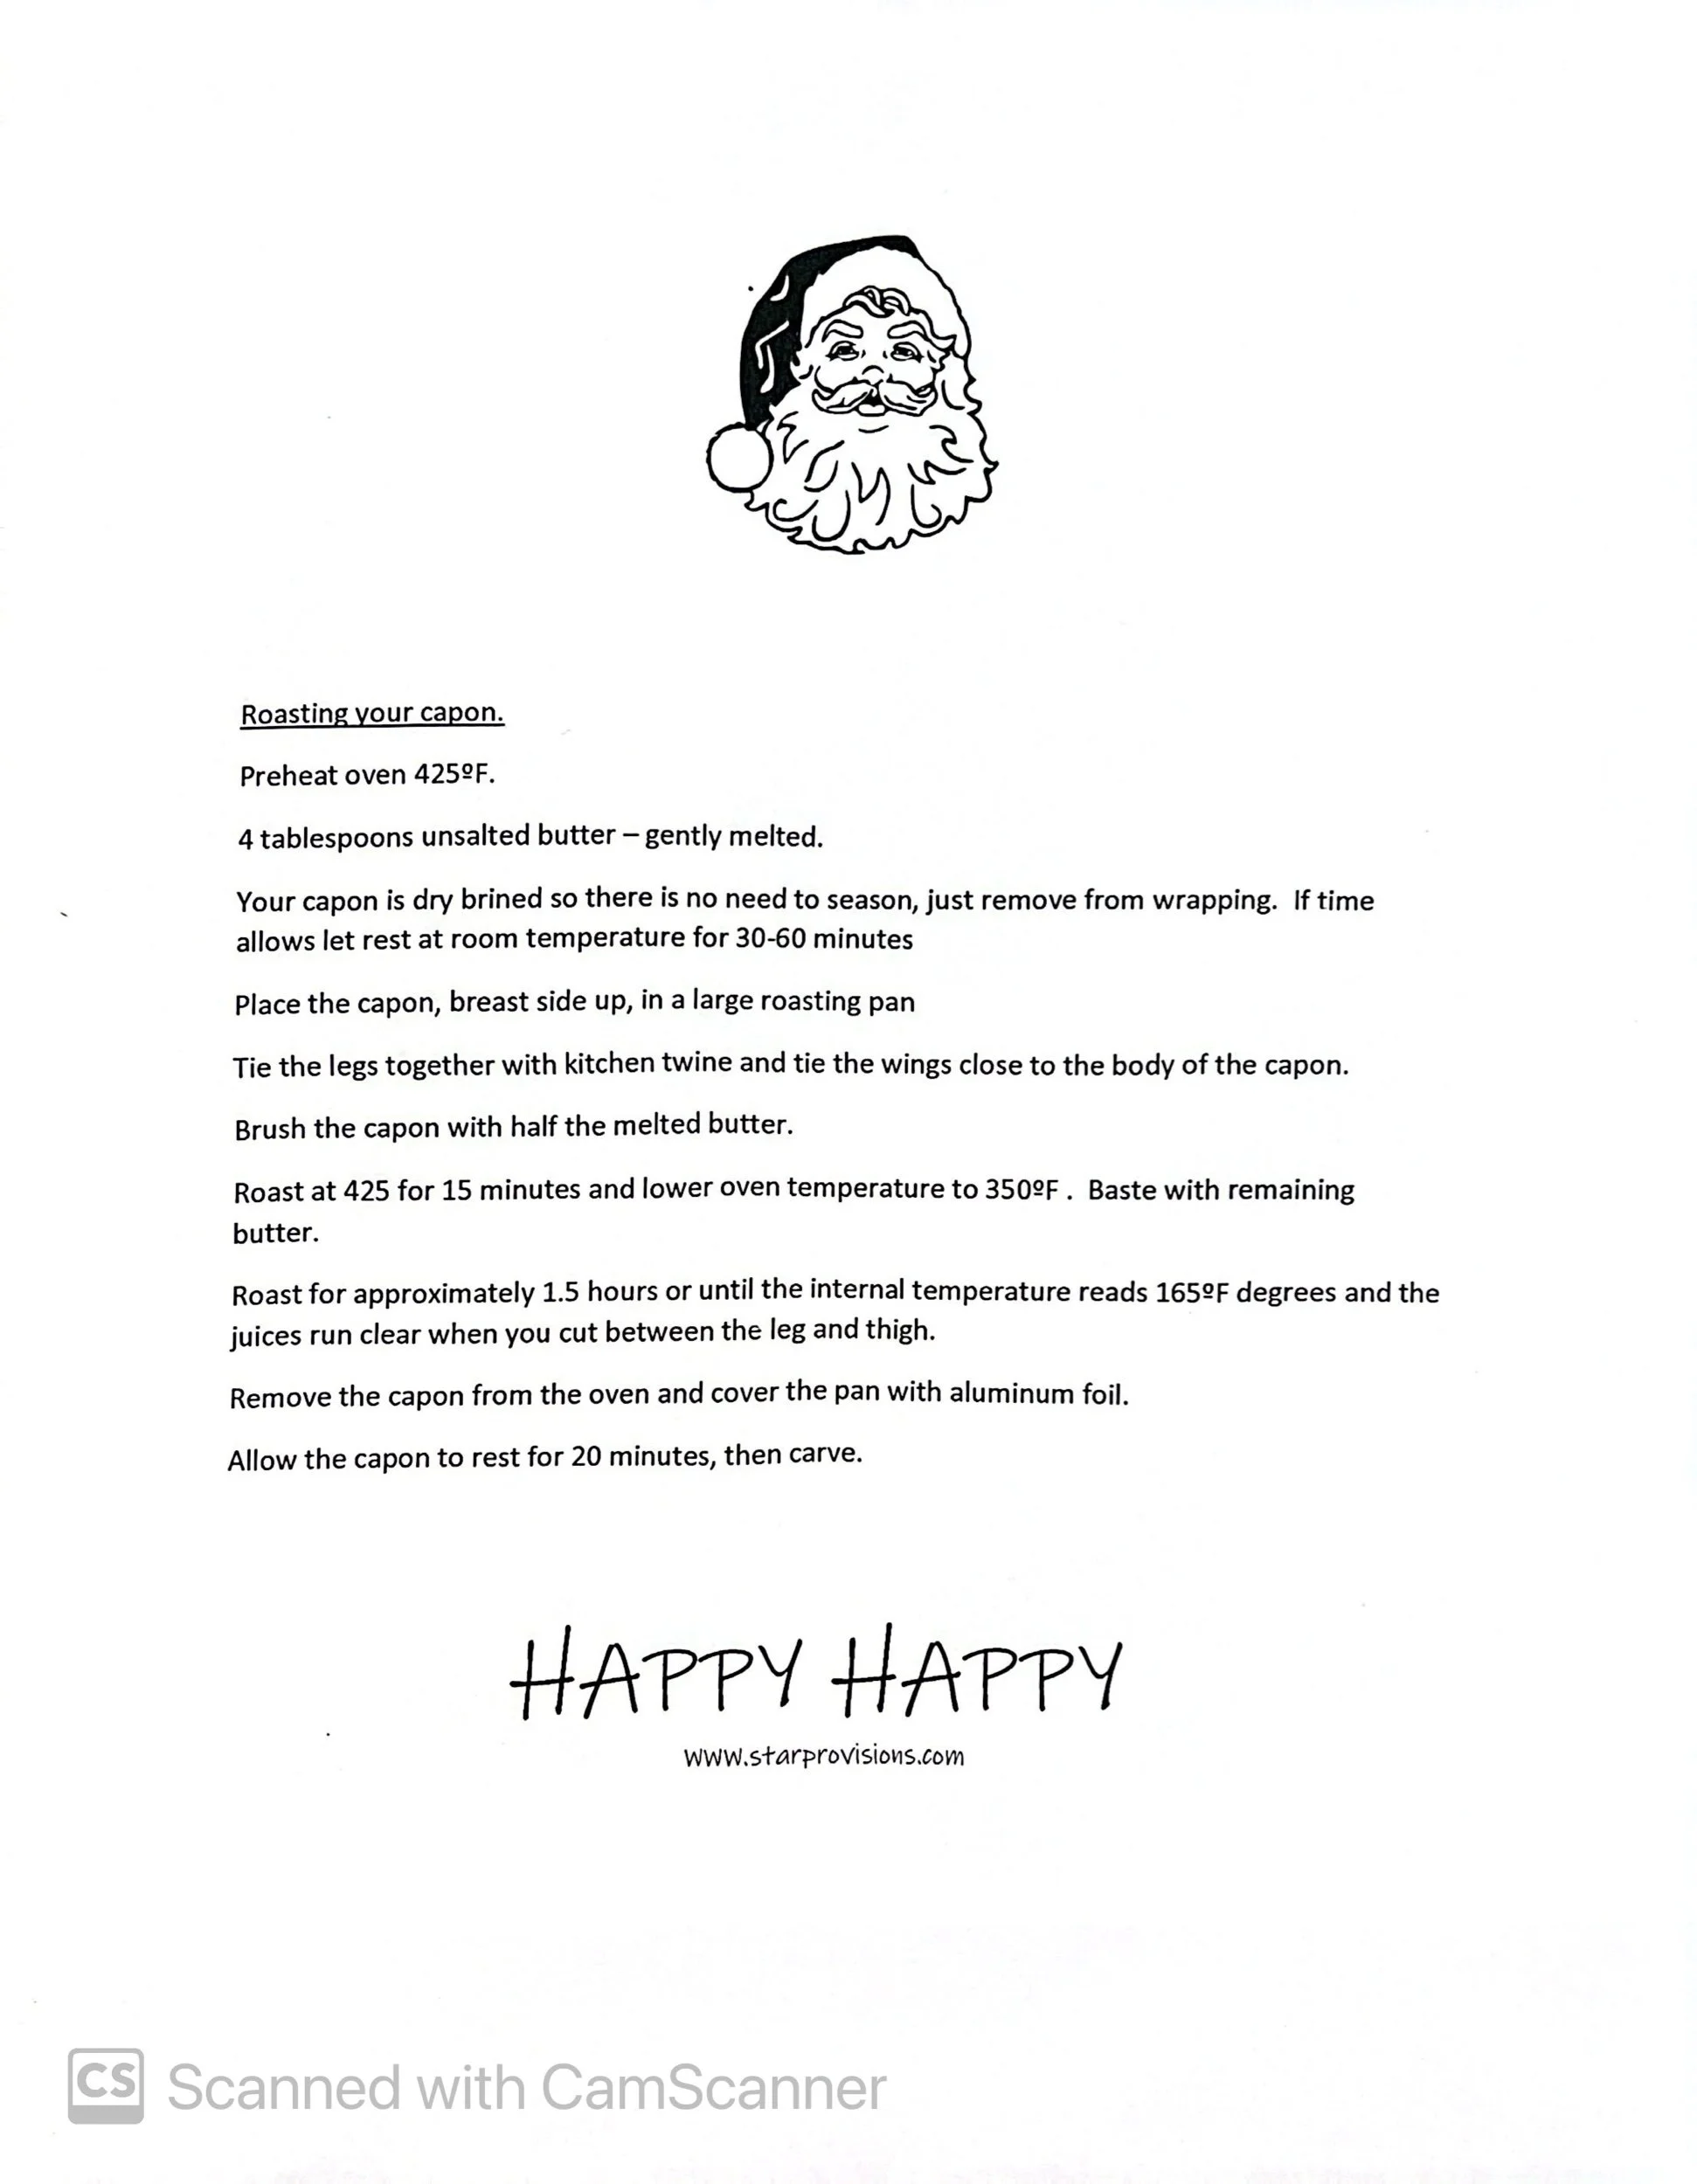 Roasting your capon.
Preheat oven 425ºF.
4 tablespoons unsalted butter – gently melted.
Your capon is dry brined so there is no need to season, just remove from wrapping.  If time
allows let rest at room temperature for 30-60 minutes
Place the capon, breast side up, in a large roasting pan
Tie the legs together with kitchen twine and tie the wings close to the body of the capon.
Brush the capon with half the melted butter.
Roast at 425 for 15 minutes and lower oven temperature to 350ºF .  Baste with remaining
butter.
Roast for approximately 1.5 hours or until the internal temperature reads 165ºF degrees and the
juices run clear when you cut between the leg and thigh.
Remove the capon from the oven and cover the pan with aluminum foil.
Allow the capon to rest for 20 minutes, then carve.
HAPPY HAPPY
www.starprovisions.com
CS Scanned with CamScanner